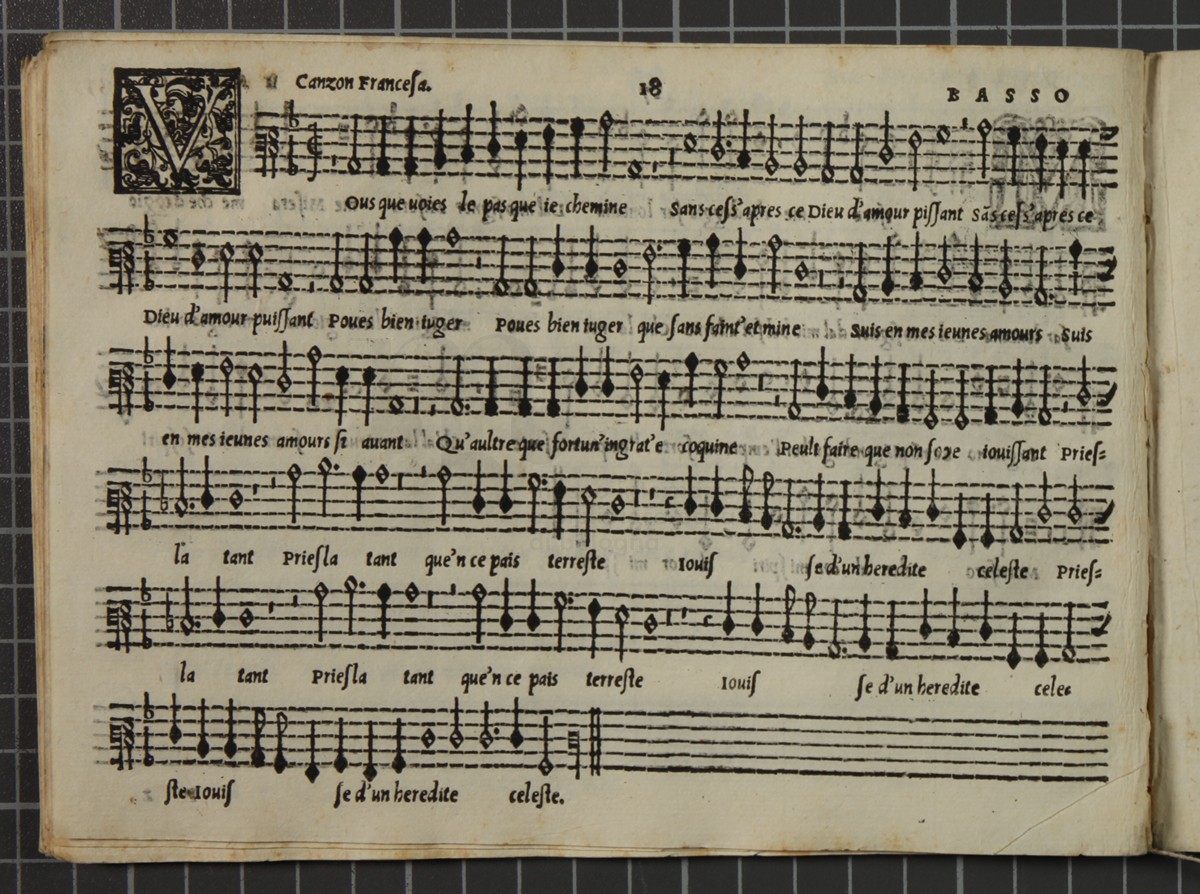 Canzon Franceſa. 18 BASSO
VOus que uoies le pas que ie chemine Sans ceſſ'apres ce Dieu d'amour piſſant Sãs ceſſ'apres ce
Dieu d'amour puiſſant Poues bien iuger Poues bien iuger que ſans faint'et mine Suis en mes ieunes amours Suis
en mes ieunes amours ſi auant Qu'aultre que fortun'ingrat'e coquine Peult faire que non ſoye iouiſſant Prieſ=
la tant Prieſla tant que'n ce pais terreſte Iouiſ ſe d'un heredite celeſte Prieſ=
la tant Prieſla tant que'n ce pais terreſte Iouiſ ſe d'un heredite cele
ſte Iouiſ ſe d'un heredite celeſte.